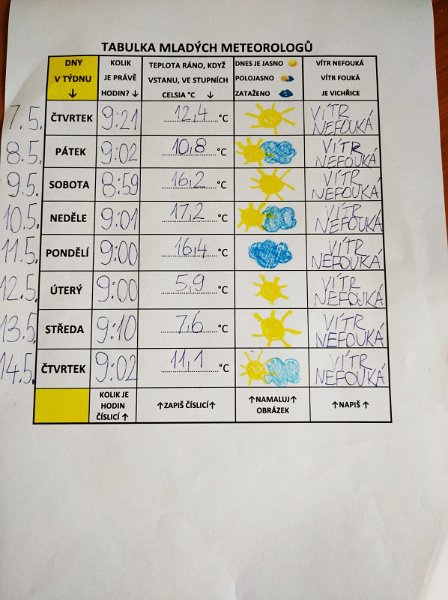 TABULKA MLADÝCH METEOROLOGŮ
DNY V TÝDNU ↓
KOLIK JE PRÁVĚ HODIN? ↓
TEPLOTA RÁNO, KDYŽ VSTANU, VE STUPNÍCH CELSIA °C ↓
DNES JE JASNO POLOJASNO ZATAŽENO
VÍTR NEFOUKÁ VÍTR FOUKÁ JE VICHŘICE
7.5. ČTVRTEK 9:21 12,4 °C VÍTR NEFOUKÁ
8.5. PÁTEK 9:02 10,8 °C VÍTR NEFOUKÁ
9.5. SOBOTA 8:59 16,2 °C VÍTR NEFOUKÁ
10.5. NEDĚLE 9:01 17,2 °C VÍTR NEFOUKÁ
11.5. PONDĚLÍ 9:00 16,4 °C VÍTR NEFOUKÁ
12.5. ÚTERÝ 9:00 5,9 °C VÍTR NEFOUKÁ
13.5. STŘEDA 9:10 7,6 °C VÍTR NEFOUKÁ
14.5. ČTVRTEK 9:02 11,1 °C VÍTR NEFOUKÁ
KOLIK JE HODIN ČÍSLICÍ ↑
↑ZAPIŠ ČÍSLICÍ↑
↑NAMALUJ↑ OBRÁZEK
↑NAPIŠ↑